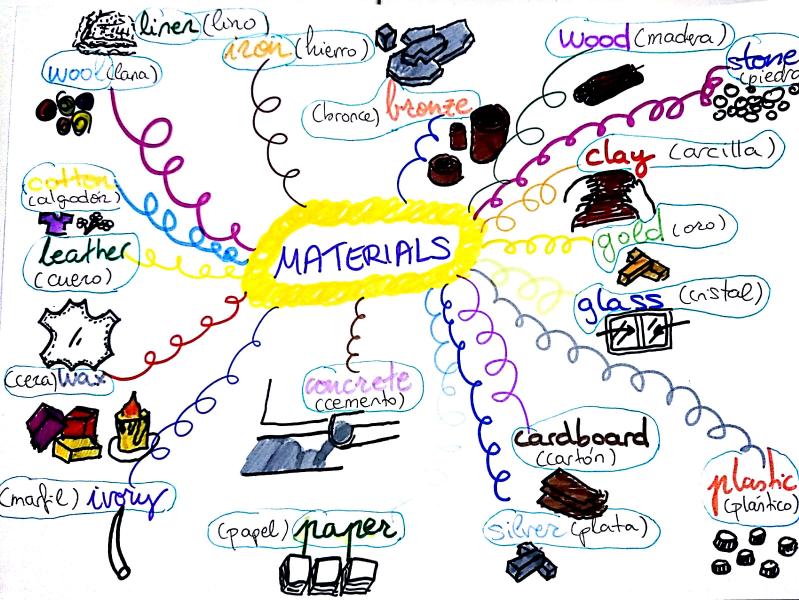 linen (lino)
iron (hierro)
wood (madera)
stone
(piedra
wool (lana)
(bronce) bronze
clay (arcilla)
cotton
(algodón)
gold (oro)
leather
(cuero)
MATERIALS
glass (cristal)
(cera) wax
concrete
(cemento)
cardboard
(cartón)
plastic
(plástico)
(marfil) ivory
(papel) paper
silver (plata)